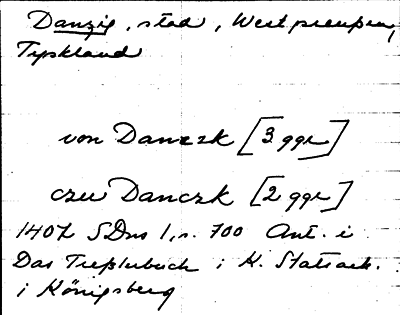 Danzig, stad, Westpreußen,
Tyskland
von Danczk [3 ggr]
czu Danczk [2 ggr]
1407 SDns 1, s. 700 Ant. i
Das Treßlerbuch i K. Statsark.
i Königsberg